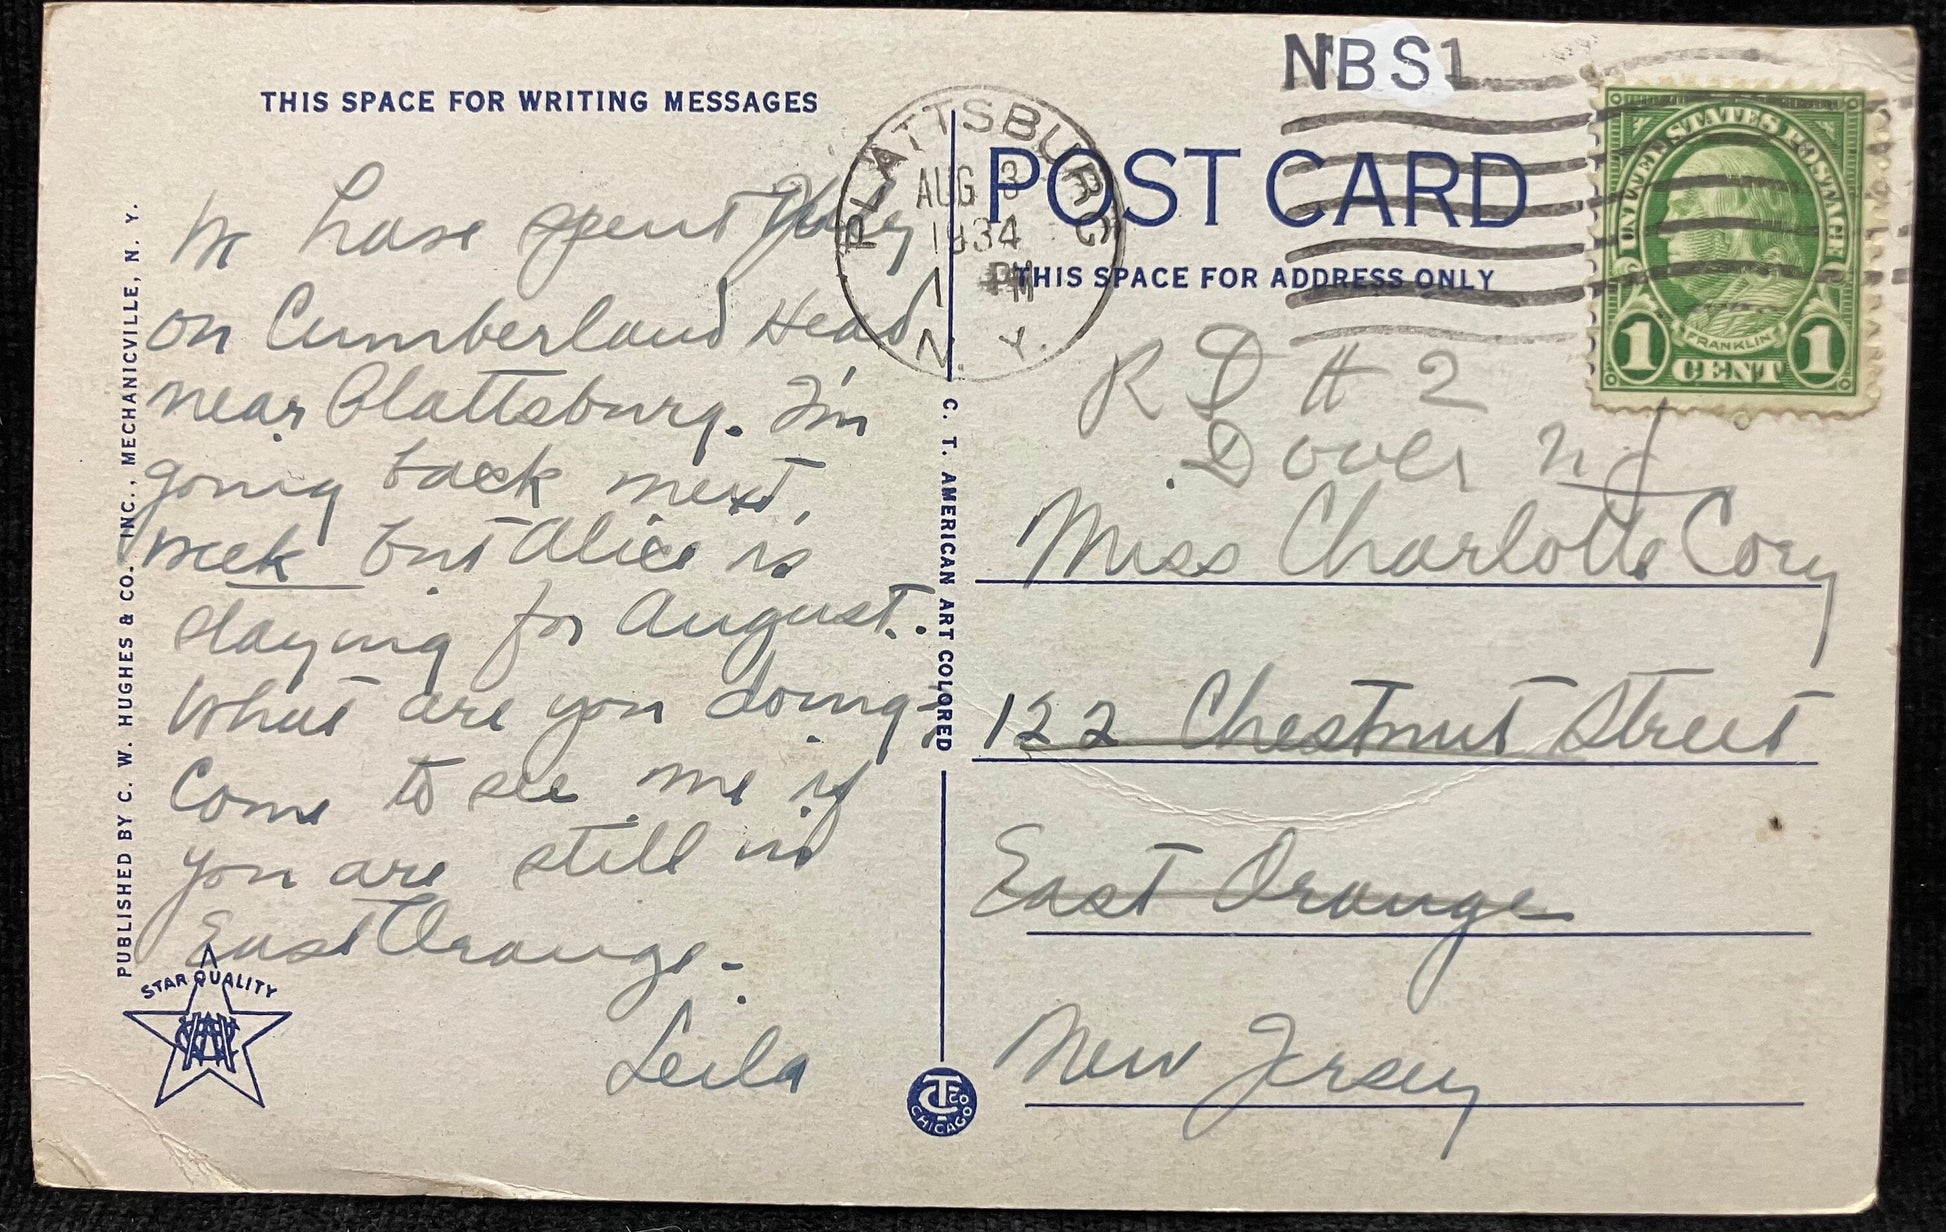 THIS SPACE FOR WRITING MESSAGES
We have spent July
on Cumberland Head
near Plattsburg. I'm
going back next
week but Alice is
staying for August.
What are you doing?
Come to see me if
you are still in
East Orange.
Leila
PUBLISHED BY C. W. HUGHES & CO. INC., MECHANICVILLE, N. Y.
A
STAR QUALITY
C. T. AMERICAN ART COLORED
CHICAGO
PLATTSBURG
AUG 3
1934
1 PM
N. Y.
NBS1
POST CARD
THIS SPACE FOR ADDRESS ONLY
UNITED STATES POSTAGE
FRANKLIN
1 CENT 1
R D # 2
Dover NJ
Miss Charlotte Cory
122 Chestnut Street
East Orange
New Jersey